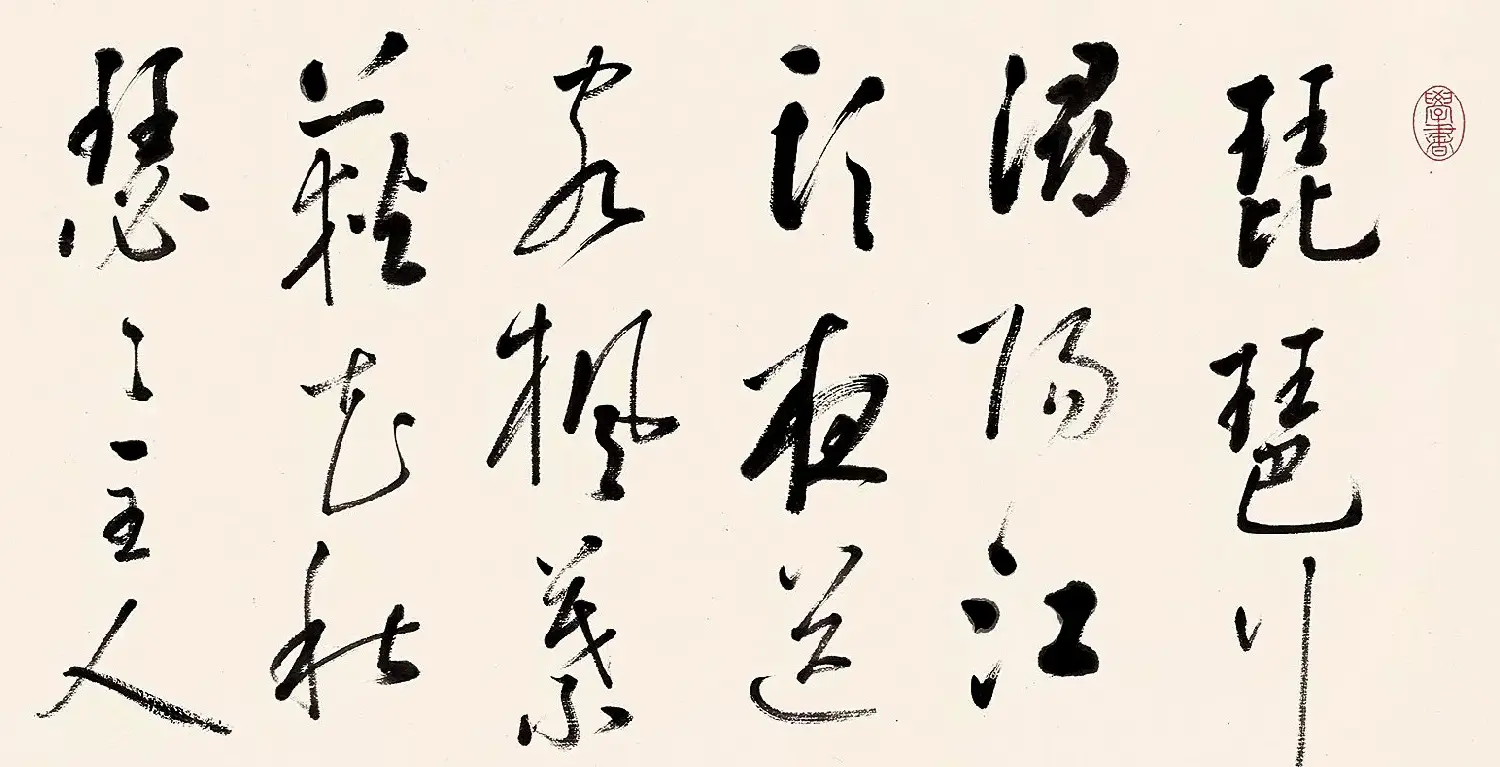 學書
琵琶行
潯陽江
頭夜送
客楓葉
荻花秋
瑟〻主人